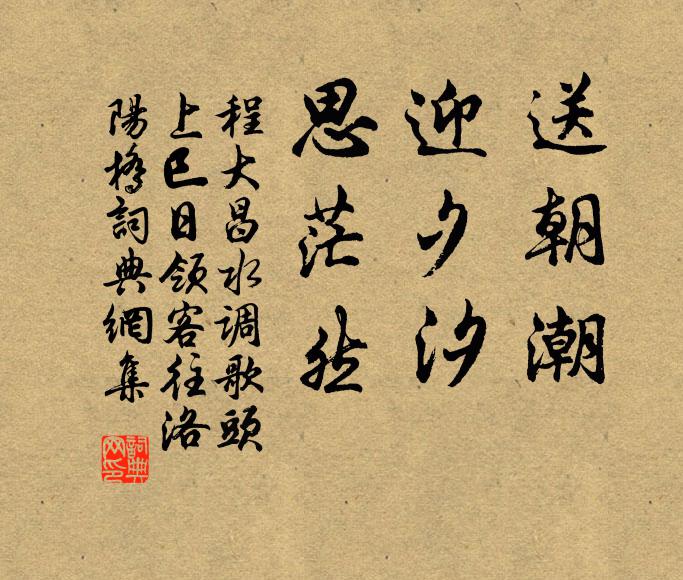 送朝潮
迎夕汐
思茫然
程大昌水调歌頭
上巳日领客往洛
陽橋詞典網集
詞典
网